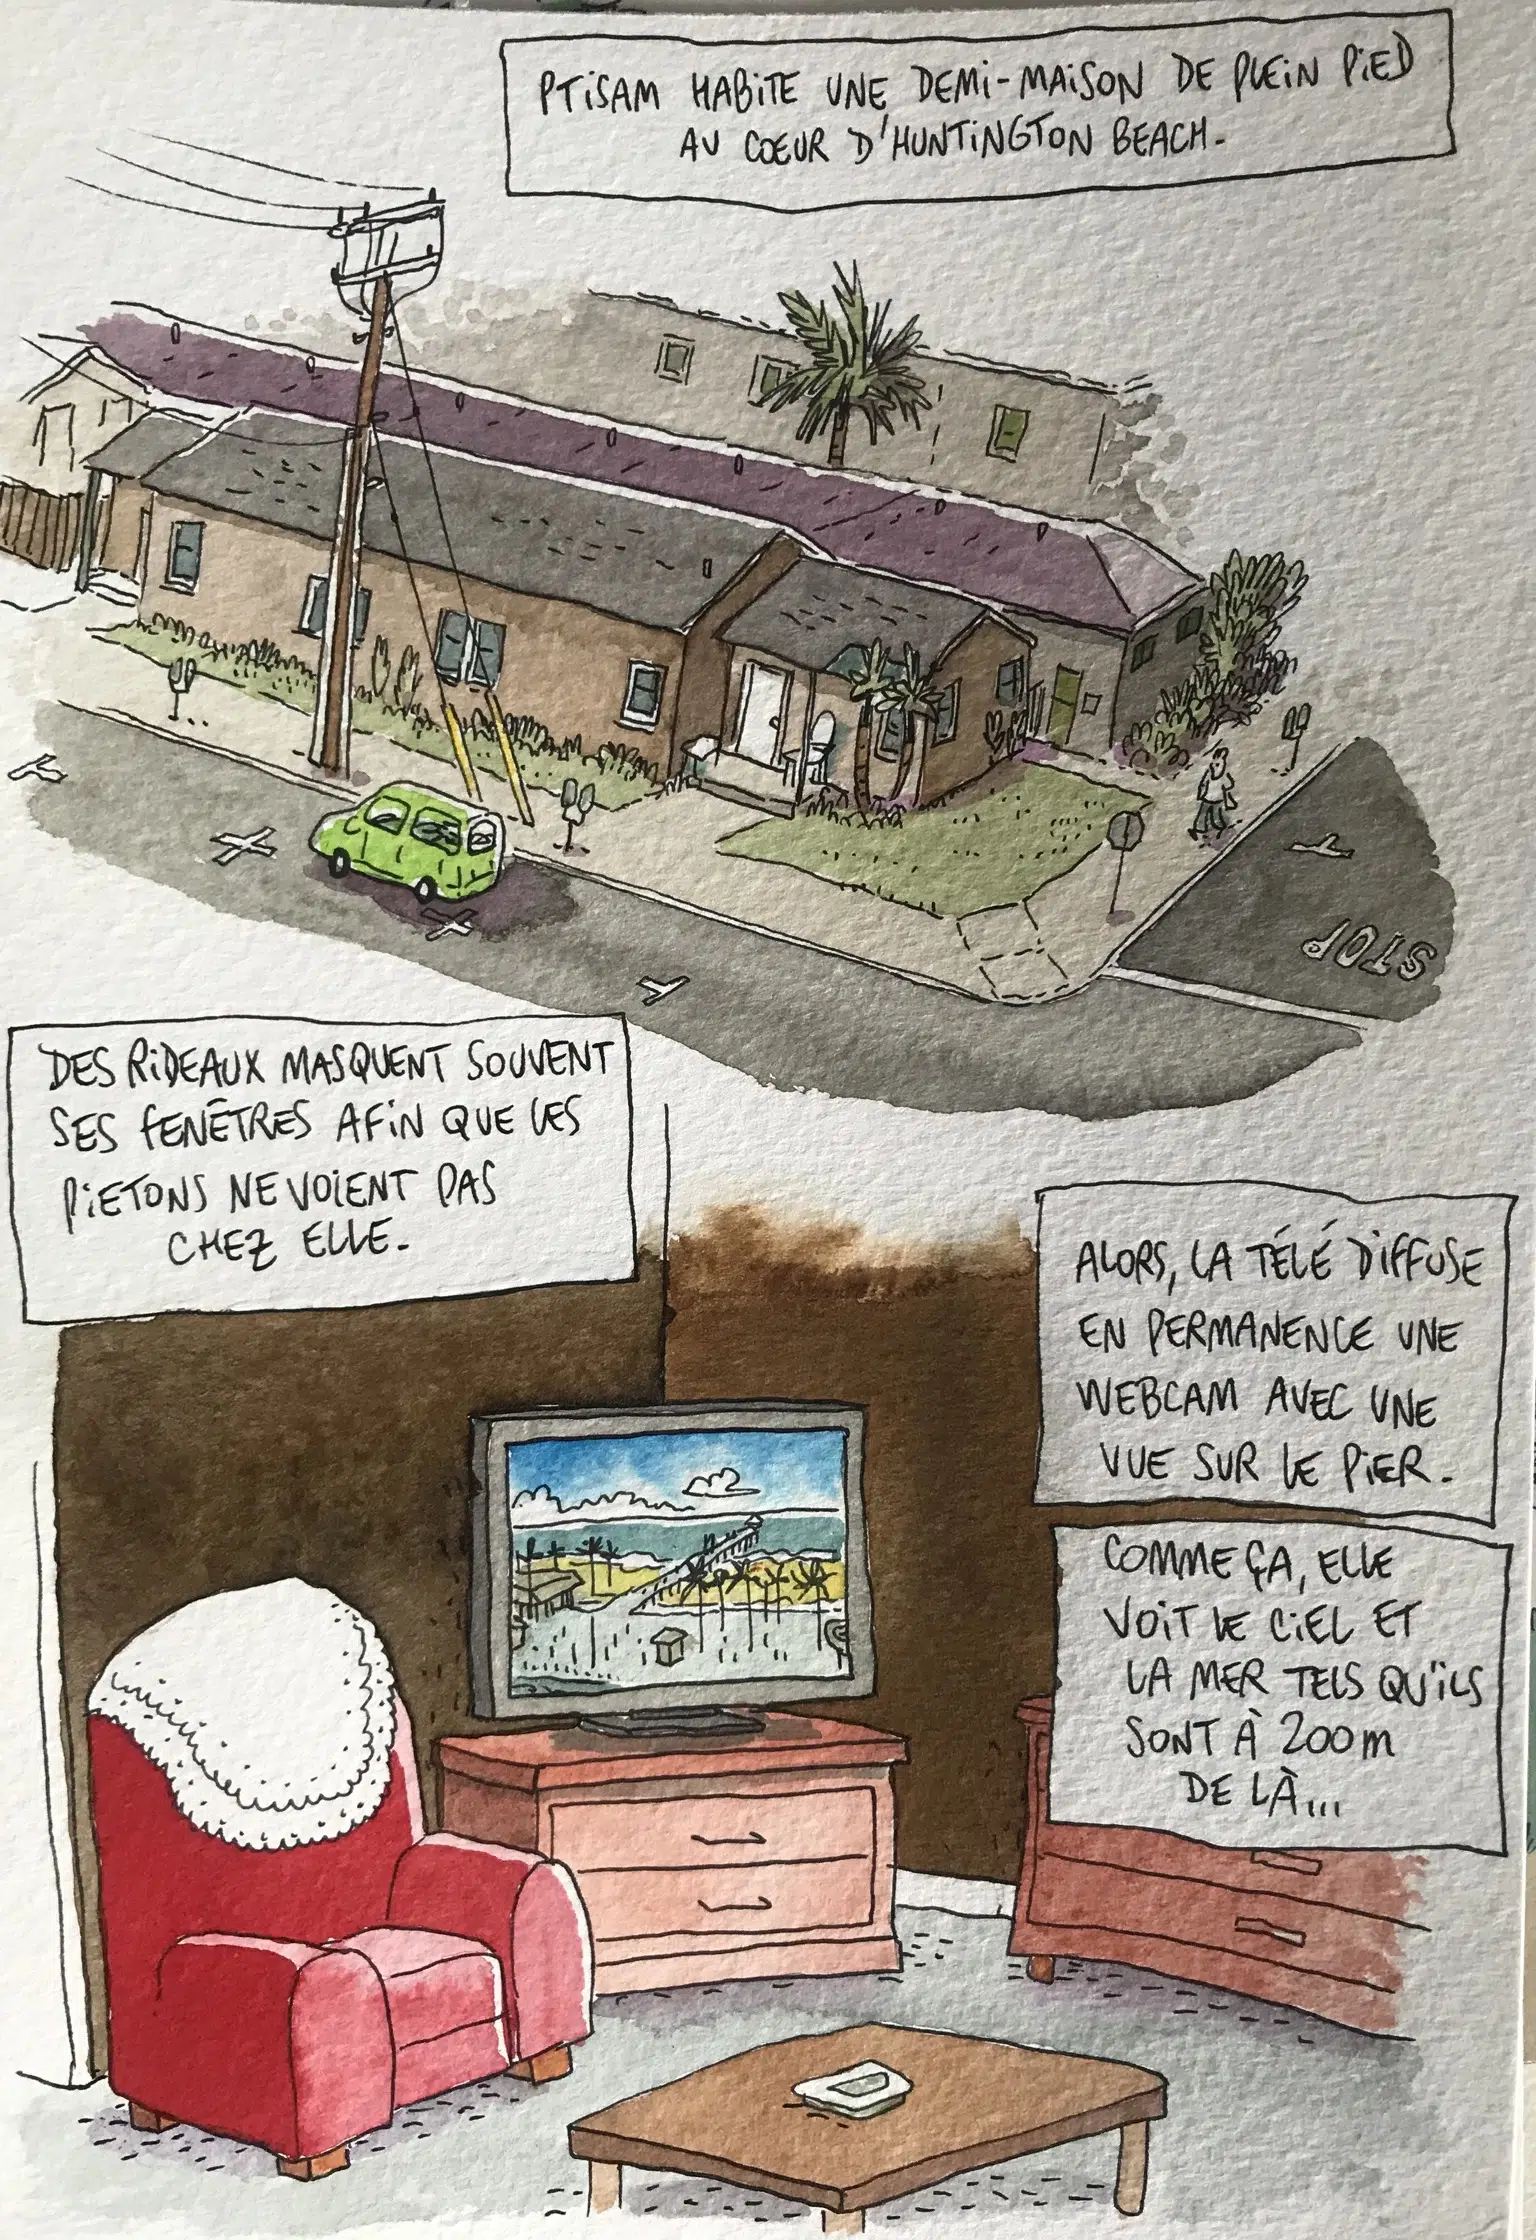 PTISAM HABITE UNE DEMI-MAISON DE PLEIN PIED
AU COEUR D'HUNTINGTON BEACH.
STOP
DES RIDEAUX MASQUENT SOUVENT
SES FENÊTRES AFIN QUE LES
PIETONS NE VOIENT PAS
CHEZ ELLE.
ALORS, LA TÉLÉ DIFFUSE
EN PERMANENCE UNE
WEBCAM AVEC UNE
VUE SUR LE PIER.
COMME ÇA, ELLE
VOIT LE CIEL ET
LA MER TELS QU'ILS
SONT À 200m
DE LÀ...